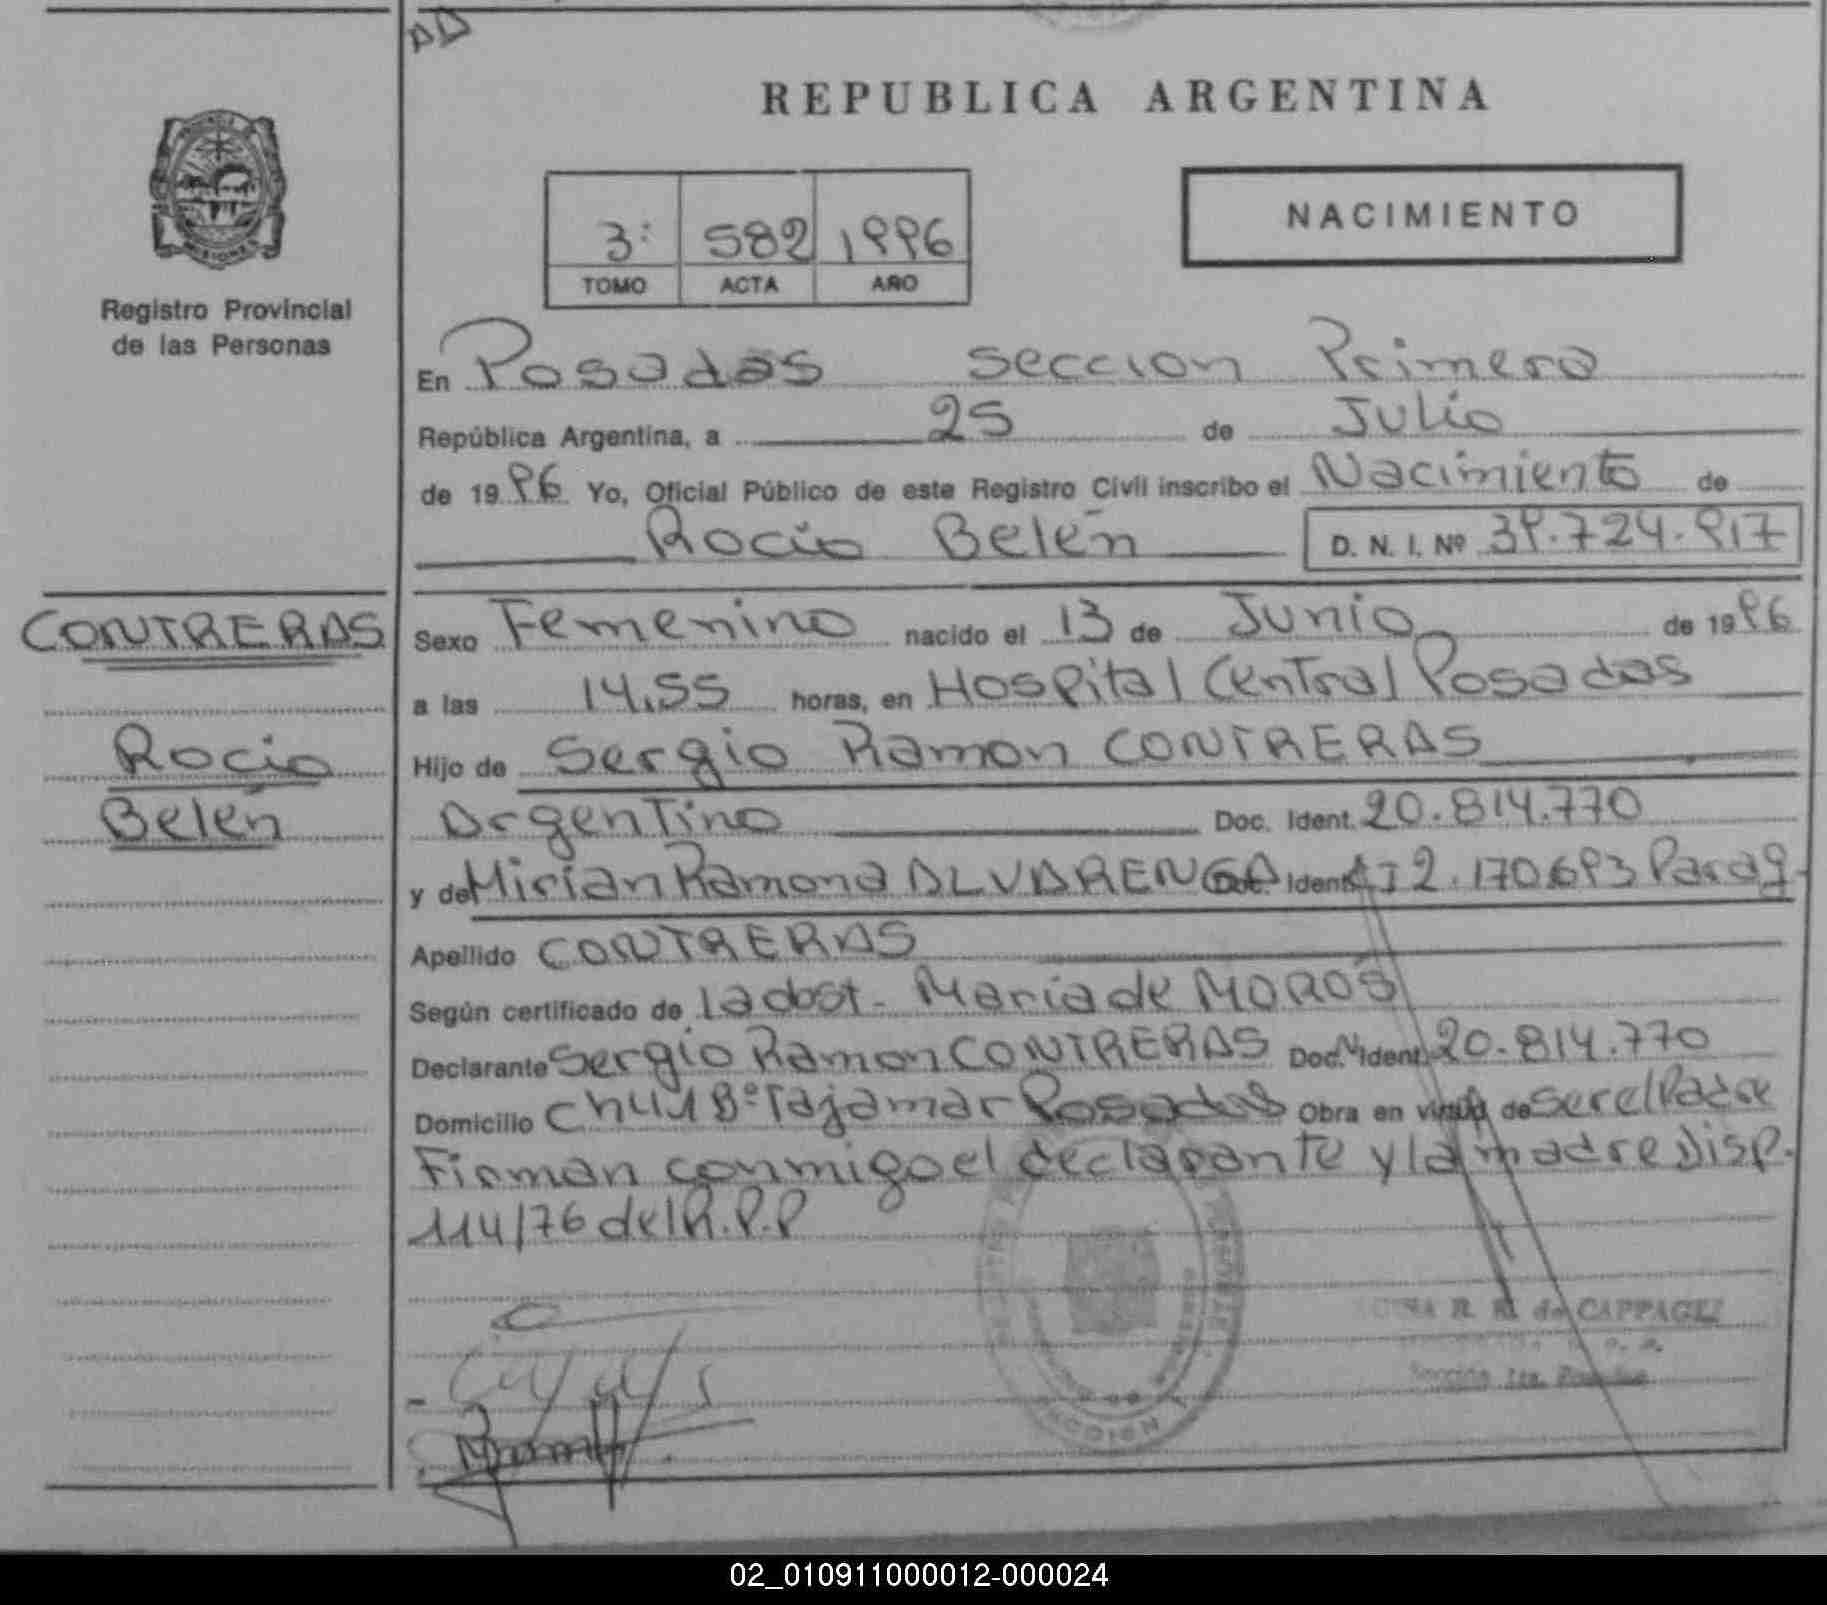 AD
REPUBLICA ARGENTINA
NACIMIENTO
3: 582 1996
TOMO ACTA AÑO
Registro Provincial
de las Personas
En Posadas seccion Primera
República Argentina, a 25 de Julio
de 1996 Yo, Oficial Público de este Registro Civil inscribo el Nacimiento de
Rocio Belén D. N. I. Nº 39.724.917
CONTRERAS
Rocio
Belén
Sexo Femenino nacido el 13 de Junio de 1996
a las 14,55 horas, en Hospital Central Posadas
Hijo de Sergio Ramon CONTRERAS
Argentino Doc. Ident. 20.814.770
y de Mirian Ramona ALVARENGA Doc. Ident. CI 2.170.693 Parag.
Apellido CONTRERAS
Según certificado de la obst. Maria de MOROS
Declarante Sergio Ramon CONTRERAS Doc. Ident. 20.814.770
Domicilio Ch 41 Bº Tajamar Posadas Obra en virtud de ser el Padre
Firman conmigo el declarante y la madre Disp.
114/76 del R.P.P
R. de CAPPAGLI
Sección 1ra. Posadas
02_010911000012-000024